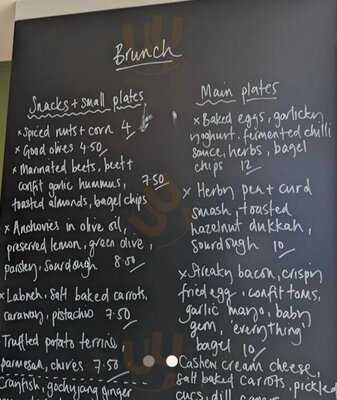 Brunch
Snacks + small plates
× Spiced nuts + corn 4
× Good olives 4.50
× Marinated beets, beet +
confit garlic hummus, 7.50
toasted almonds, bagel chips
× Anchovies in olive oil,
preserved lemon, green olive,
parsley, sourdough 8.00
× Labneh, salt baked carrots,
caraway, pistachio 7.50
Truffled potato terrine,
parmesan, chives 7.50
Crayfish, gochujang ginger
Main plates
× Baked eggs, garlicky
yoghurt, fermented chilli
sauce, herbs, bagel
chips 12
× Herby pea + curd
smash, toasted
hazelnut dukkah,
sourdough 10
× Streaky bacon, crispy
fried egg, confit toms,
garlic mayo, baby
gem, 'everything'
bagel 10
Cashew cream cheese,
salt baked carrots, pickled
cucs, dill